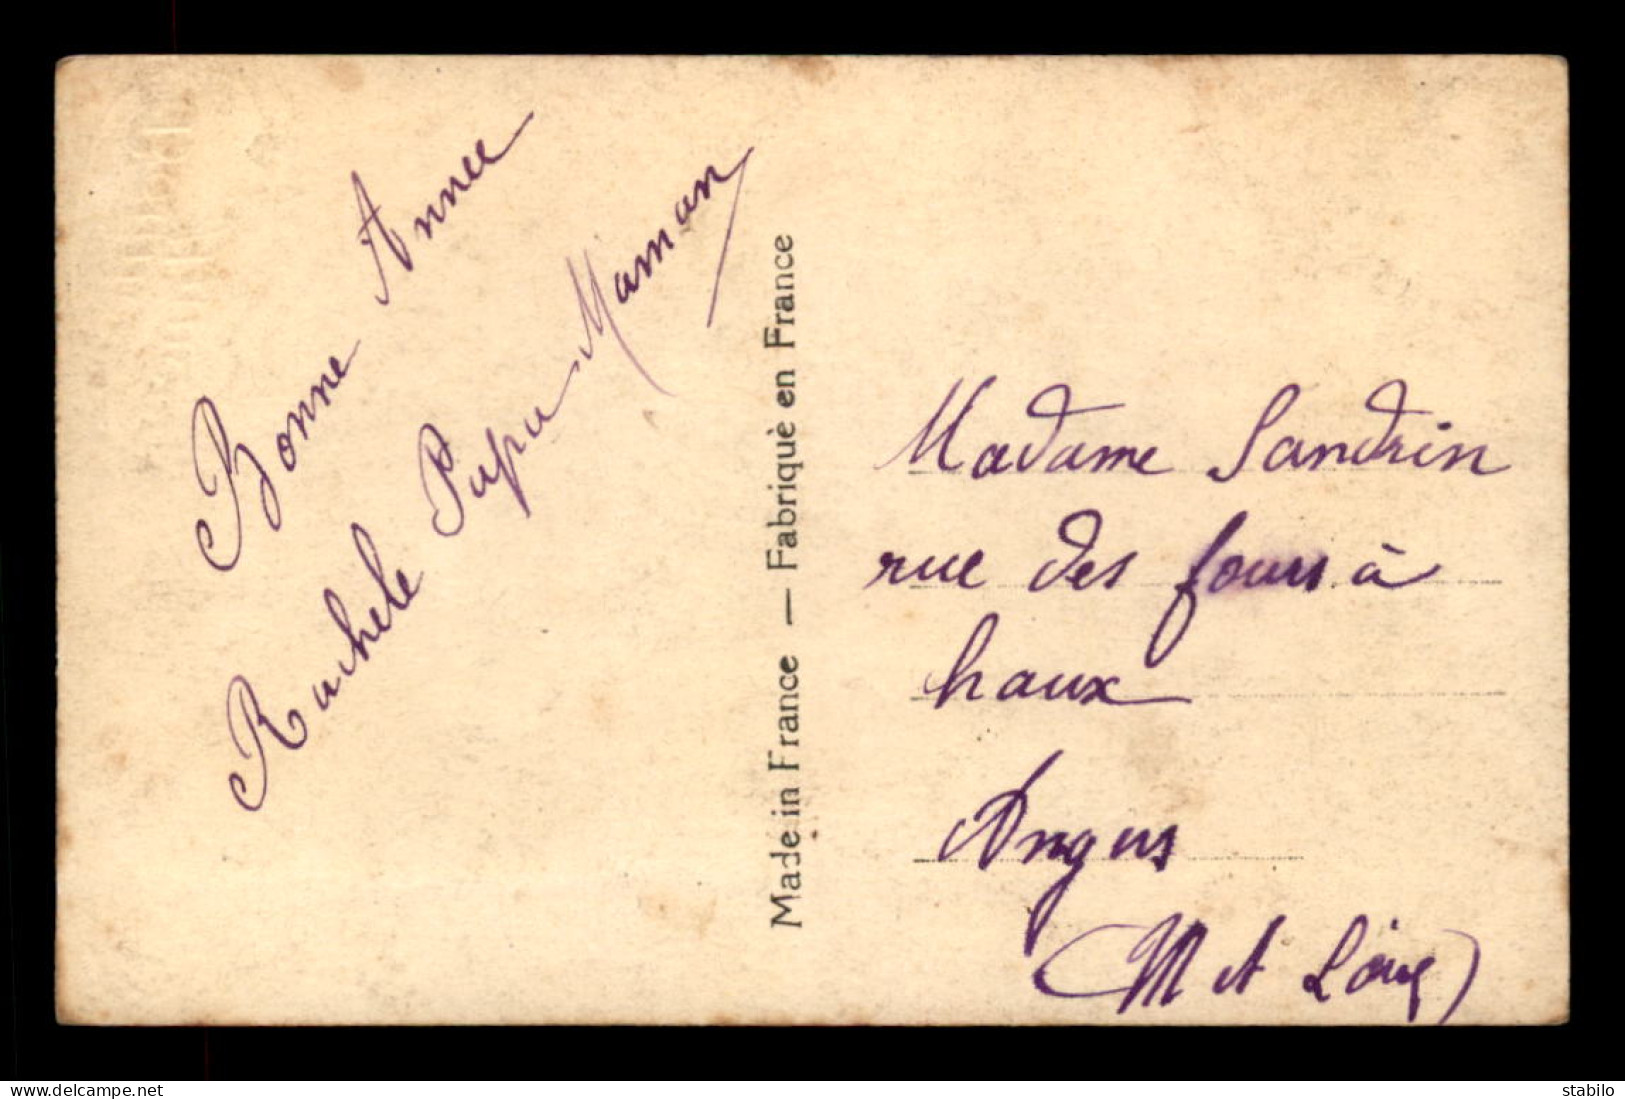 Bonne Annee
Rachele Papa Maman
Made in France — Fabriquè en France
Madame Sandrin
rue des fours à
haux
Angers
(M et Loire)
delcampe.net
stabilo